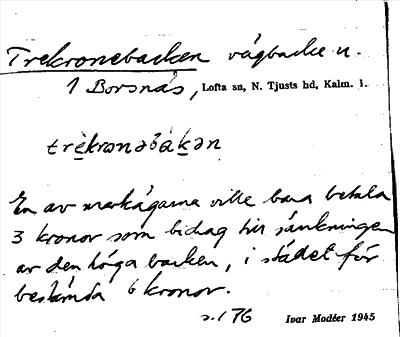 Trekronebacken vägbacke n.
1 Borsnäs, Lofta sn, N. Tjusts hd, Kalm. l.
trèkronəbákən
En av markägarna ville bara betala
3 kronor som bidrag till sänkningen
av den höga backen, i stället för
bestämda 6 kronor.
s. 176 Ivar Modéer 1945